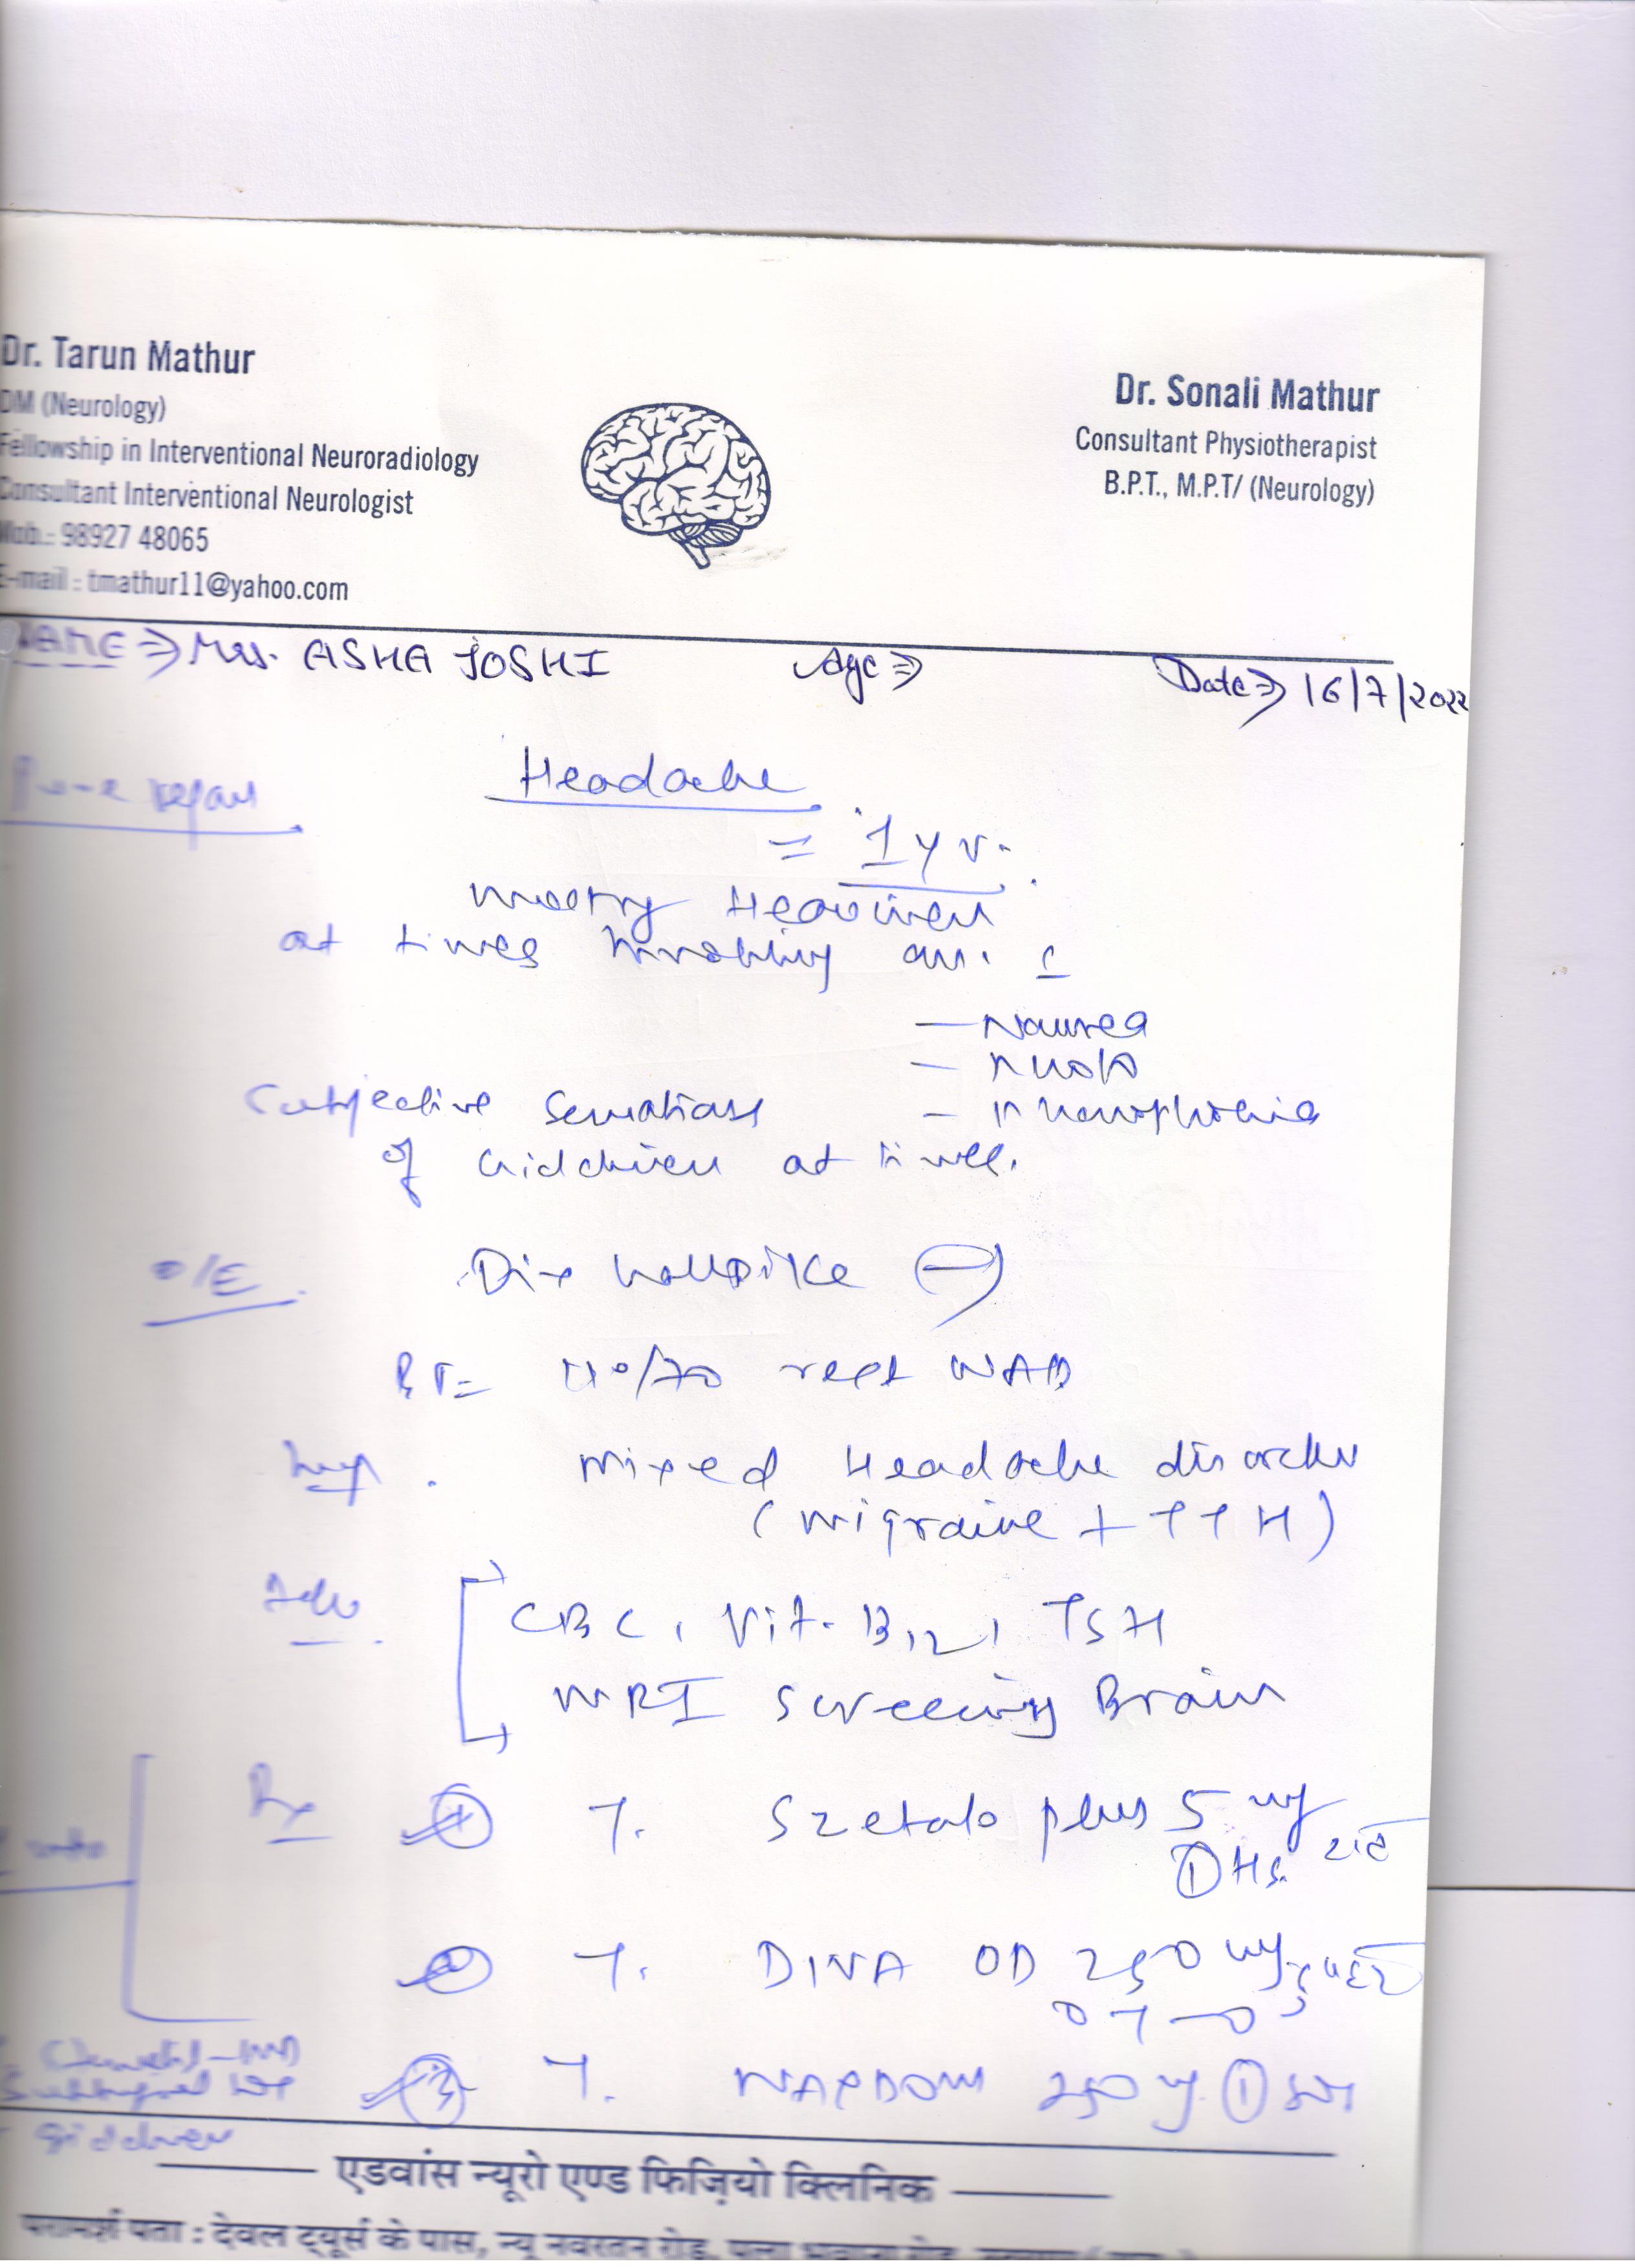 Dr. Tarun Mathur
DM (Neurology)
Fellowship in Interventional Neuroradiology
Consultant Interventional Neurologist
Mob.: 98927 48065
E-mail : tmathur11@yahoo.com
Dr. Sonali Mathur
Consultant Physiotherapist
B.P.T., M.P.T/ (Neurology)
NAME ⇒ Mrs. ASHA JOSHI Age ⇒ Date ⇒ 16/7/2022
Headache
= 1 yr.
mostly Heaviness
at times throbbing
- Nausea
- Photo
Subjective sensations - Phonophobia
of Giddiness at times.
O/E Dix hallpike (-)
BP= /70 rest NAD
Imp. Mixed Headache disorder
(migraine + TTH)
Adv. CBC, Vit. B12, TSH
MRI Screening Brain
Rx ① T. Szetalo plus 5 mg
① HS.
② T. DIVA OD 250 mg
③ T. NAPDOM 250 mg ① SOS
Giddiness
एडवांस न्यूरो एण्ड फिज़ियो क्लिनिक
परामर्श पता : देवल ट्यूर्स के पास, न्यू नवरतन रोड,